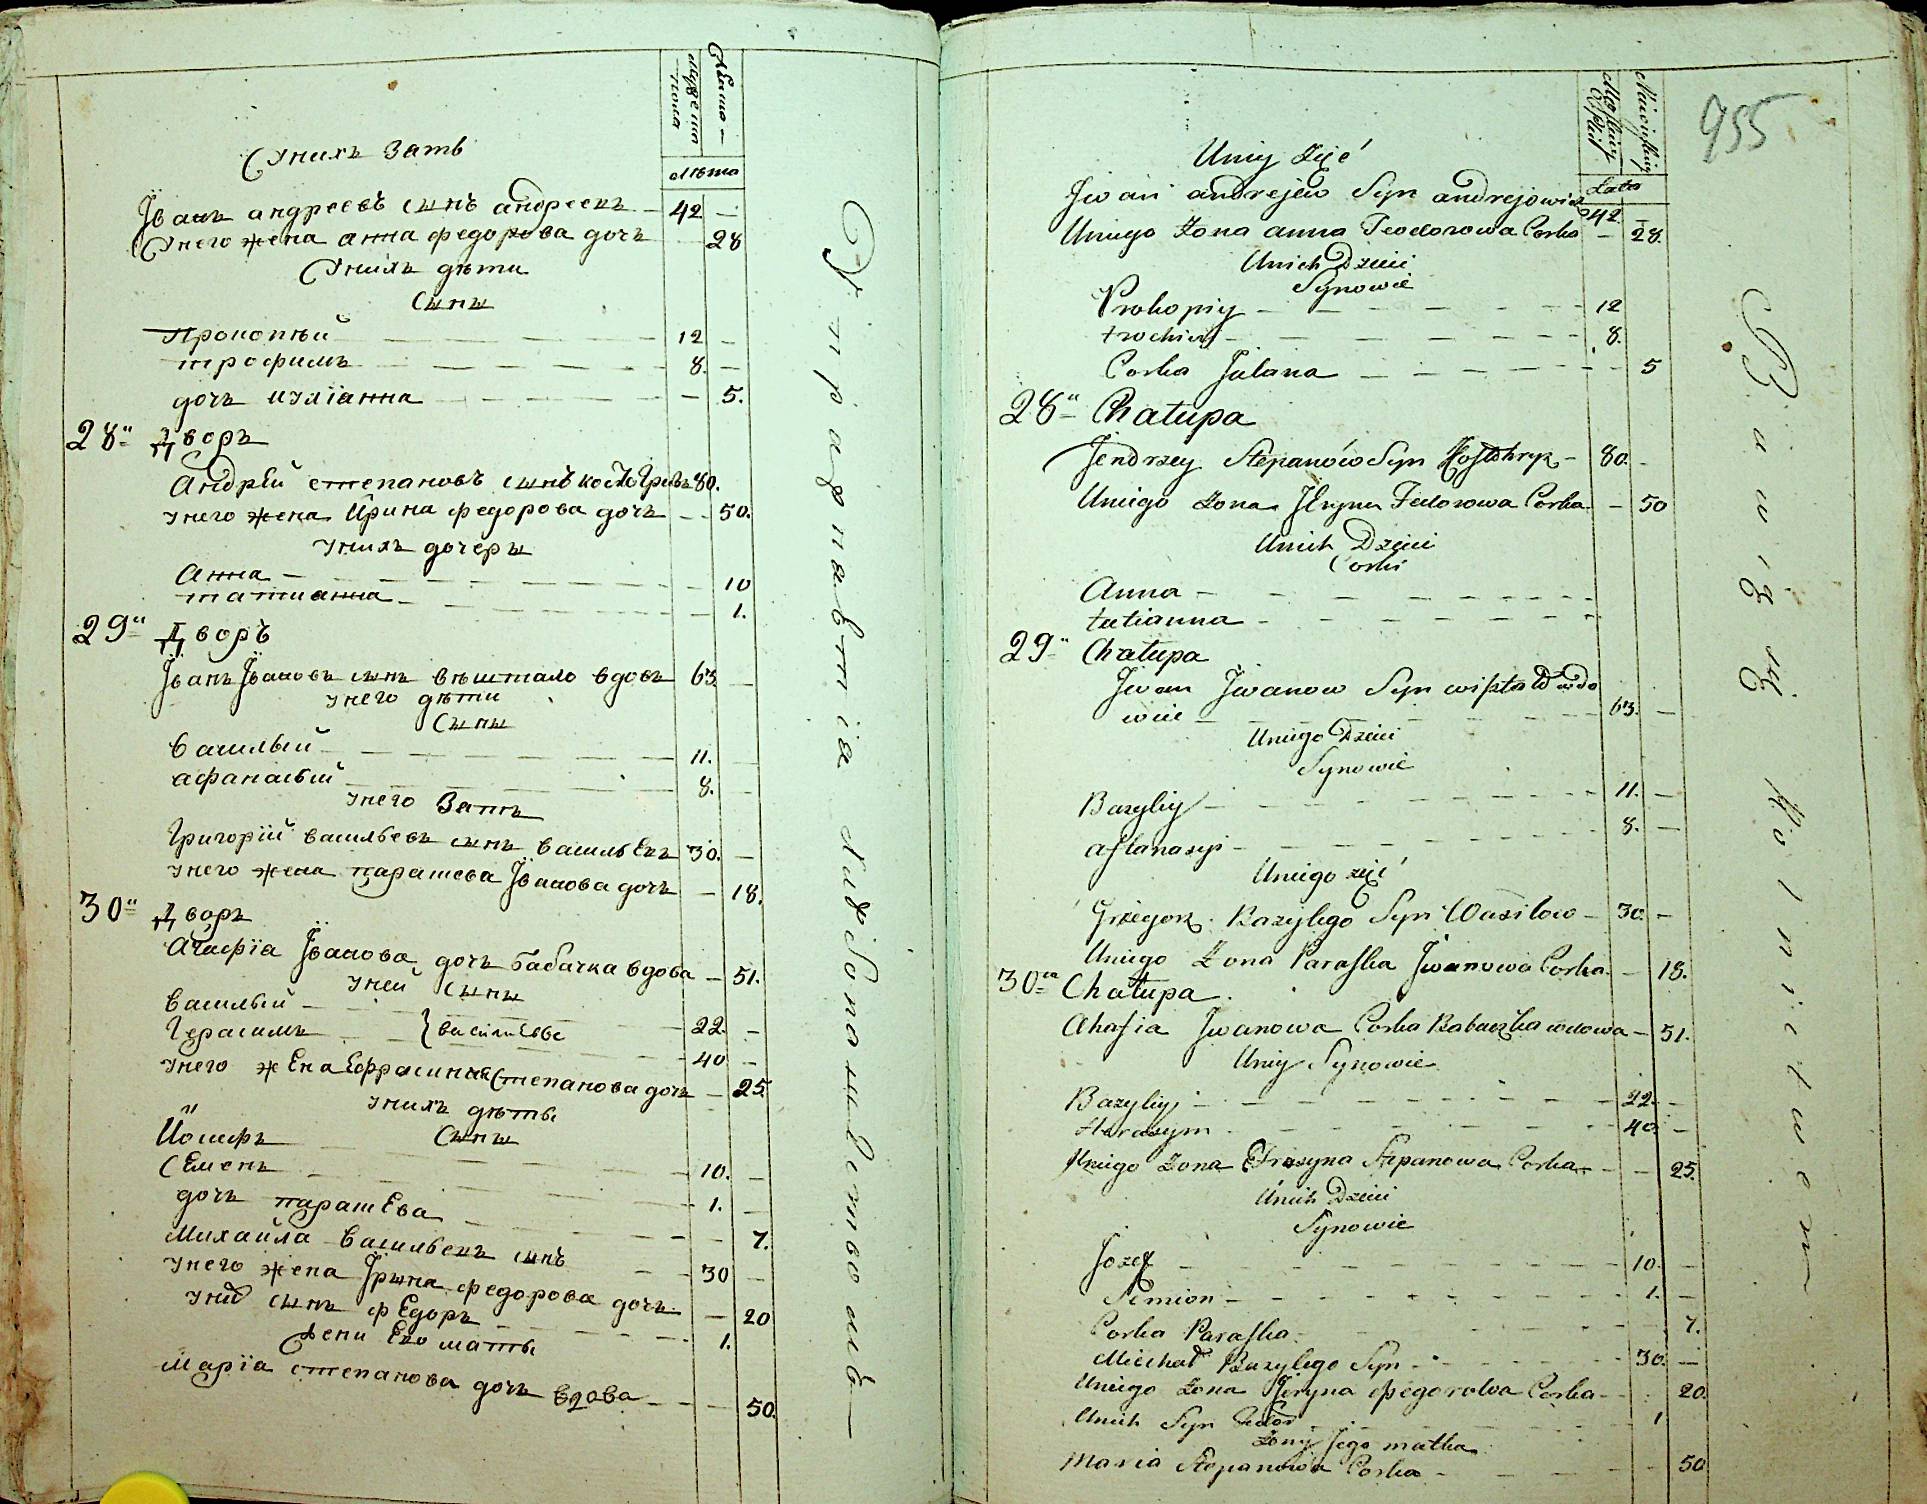 мужеска
пола
женска
лѣта
Унихъ зать
Іванъ андреевъ сынъ андреекъ - 42 -
Унего жена анна федорова дочь - 28
Унихъ дѣти
Сыны
Прокопѣй - 12 -
трофимъ - 8. -
дочь иулїанна - 5.
28ⁿ Дворъ
Андрѣй степановъ сынъ 80.
унего жена Ирина федорова дочъ - 50.
унихъ дочеры
Анна - 10
татианна - 1.
29ⁿ Дворъ
Іванъ Івановъ сынъ вѣштало вдовъ 63. -
унего дѣти
Сыны
василѣй - 11. -
афанасѣй - 8. -
унего Зать
Григорїй васильевъ сынъ василѣкъ 30. -
унего жена парасева Іванова дочь - 18.
30ⁿ Дворъ
Агафїа Іванова дочь бабачка вдова - 51.
уней сыны
василѣй - 22. -
Герасимъ } василѣевы - 40 -
унего жена Ефросинна Степанова дочь - 25.
унихъ дѣты
Сыны
Иосифъ - 10. -
Семенъ - 1. -
дочь парасѣва - 7.
Михайла василѣевъ сынъ - 30 -
унего жена Ірына федорова дочь - 20
сынъ федоръ - 1.
жены Его маты
Марїа степанова дочь вдова - 50.
955
Łata
Uniy Zięć
Jwan andrejew Syn andrejowicz 42 -
Uniego Zona anna Teodorowa Corka - 28.
Unich Dzieci
Synowie
Prokopiy - 12
trochim - 8.
Corka Julana - 5
28ⁿ Chatupa
Jendrzey Stepanów Syn - 80. -
Uniego Zona Jryna Fedorowa Corka - 50
Unich Dzieci
Corki
Anna -
tatianna -
29ⁿ Chatupa
Jwan Jwanow Syn wiształo wdo
wiec - 63. -
Uniego Dzieci
Synowie
Bazyliy - 11. -
aftanasyi - 8. -
Uniego zięć
Grzegorz Bazylego Syn Wasilow - 30. -
Uniego Zona Paraska Jwanowa Corka - 18.
30ⁿ Chatupa.
Ahafia Jwanowa Corka Babaczka wdowa - 51.
Uniy Synowie
Bazyliy - 22. -
Harasym - 40. -
Uniego Zona Efrosyna Stepanowa Corka - 25.
Unich Dzieci
Synowie
Jozef - 10. -
Semion - 1. -
Corka Paraska - 7.
Miechał Bazylego Syn - 30. -
Uniego Zona Jeryna fegorowa Corka - 20.
Unich Syn Fedor - 1
Zony Jego matka
Maria Stepanowa Corka - 50